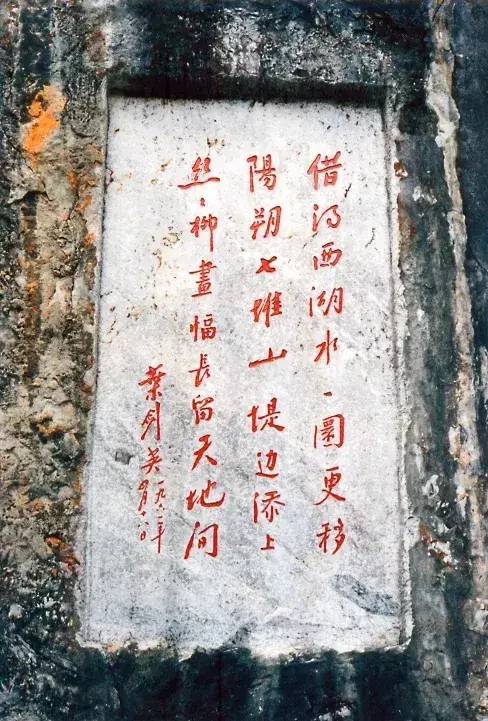 借得西湖水一圜更移
陽朔七堆山堤边添上
丝々柳畫幅長留天地间
葉剑英一九六二年